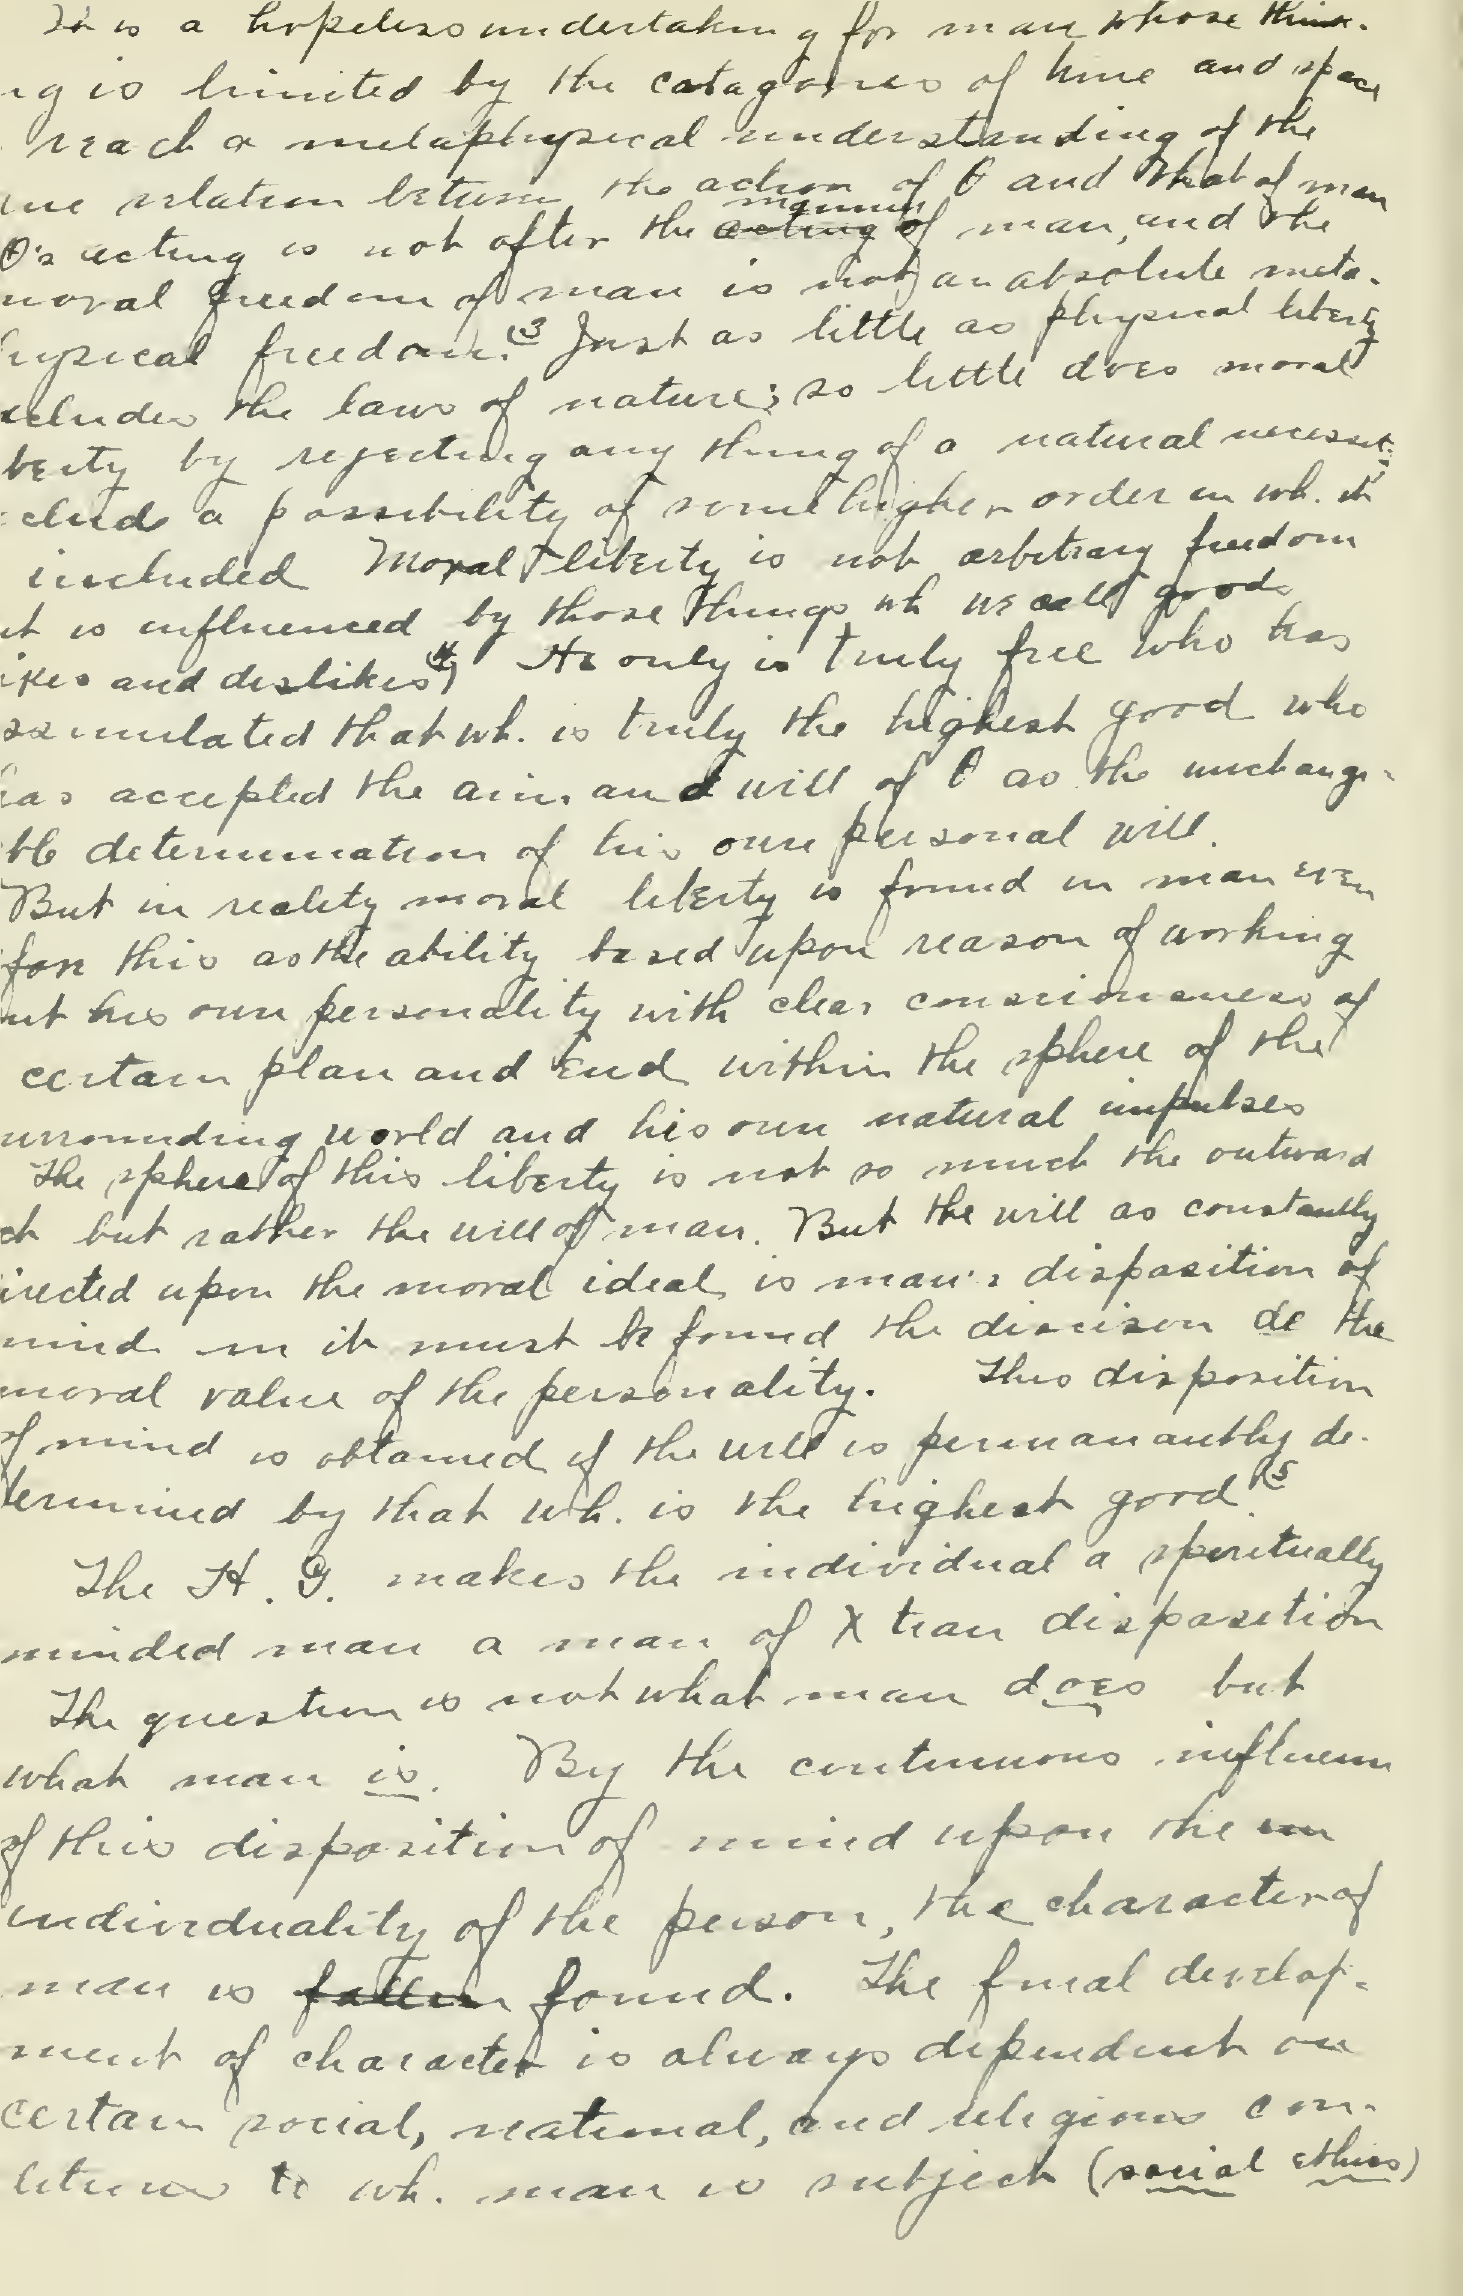 It is a hopeless undertaking for man whose think-
ng is limited by the catagories of time and space
reach a metaphysical understanding of the
ue relation between the action of θ and that of man
θ's acting is not after the acting manner of man, and the
moral freedom of man is not an absolute meta-
hysical freedom.(3 Just as little as physical liberty
xcludes the laws of nature; so little does moral
berty by rejecting any thing of a natural necessit-
clude a possibility of some higher order in wh. it
included Moral liberty is not arbitrary freedom
ut is influenced by those things wh we call goods
ikes and dislikes(4) He only is truly free who has
ssimulated that wh. is truly the highest good who
has accepted the aim and will of θ as the unchange-
ble determination of his own personal will.
But in reality moral liberty is found in man even
fore this as the ability based upon reason of working
ut his own personality with clear consciousness of
certain plan and End within the sphere of the
urrounding world and his own natural impulses
The sphere of this liberty is not so much the outward
ct but rather the will of man. But the will as constantly
irected upon the moral ideal is man's disposition of
mind in it must be found the dicision de the
moral value of the personality. This disposition
of mind is obtained if the will is permanantly de-
termined by that wh. is the highest good(5
The H. G. makes the individual a spiritually
minded man a man of Xtian disposition
The question is not what man does but
what man is. By the continuous influence
of this disposition of mind upon the un
individuality of the person, the character of
man is fallen found. The final develop-
ment of character is always dependent on
certain social, national, and religious con-
ditions to wh. man is subject (social ethics)